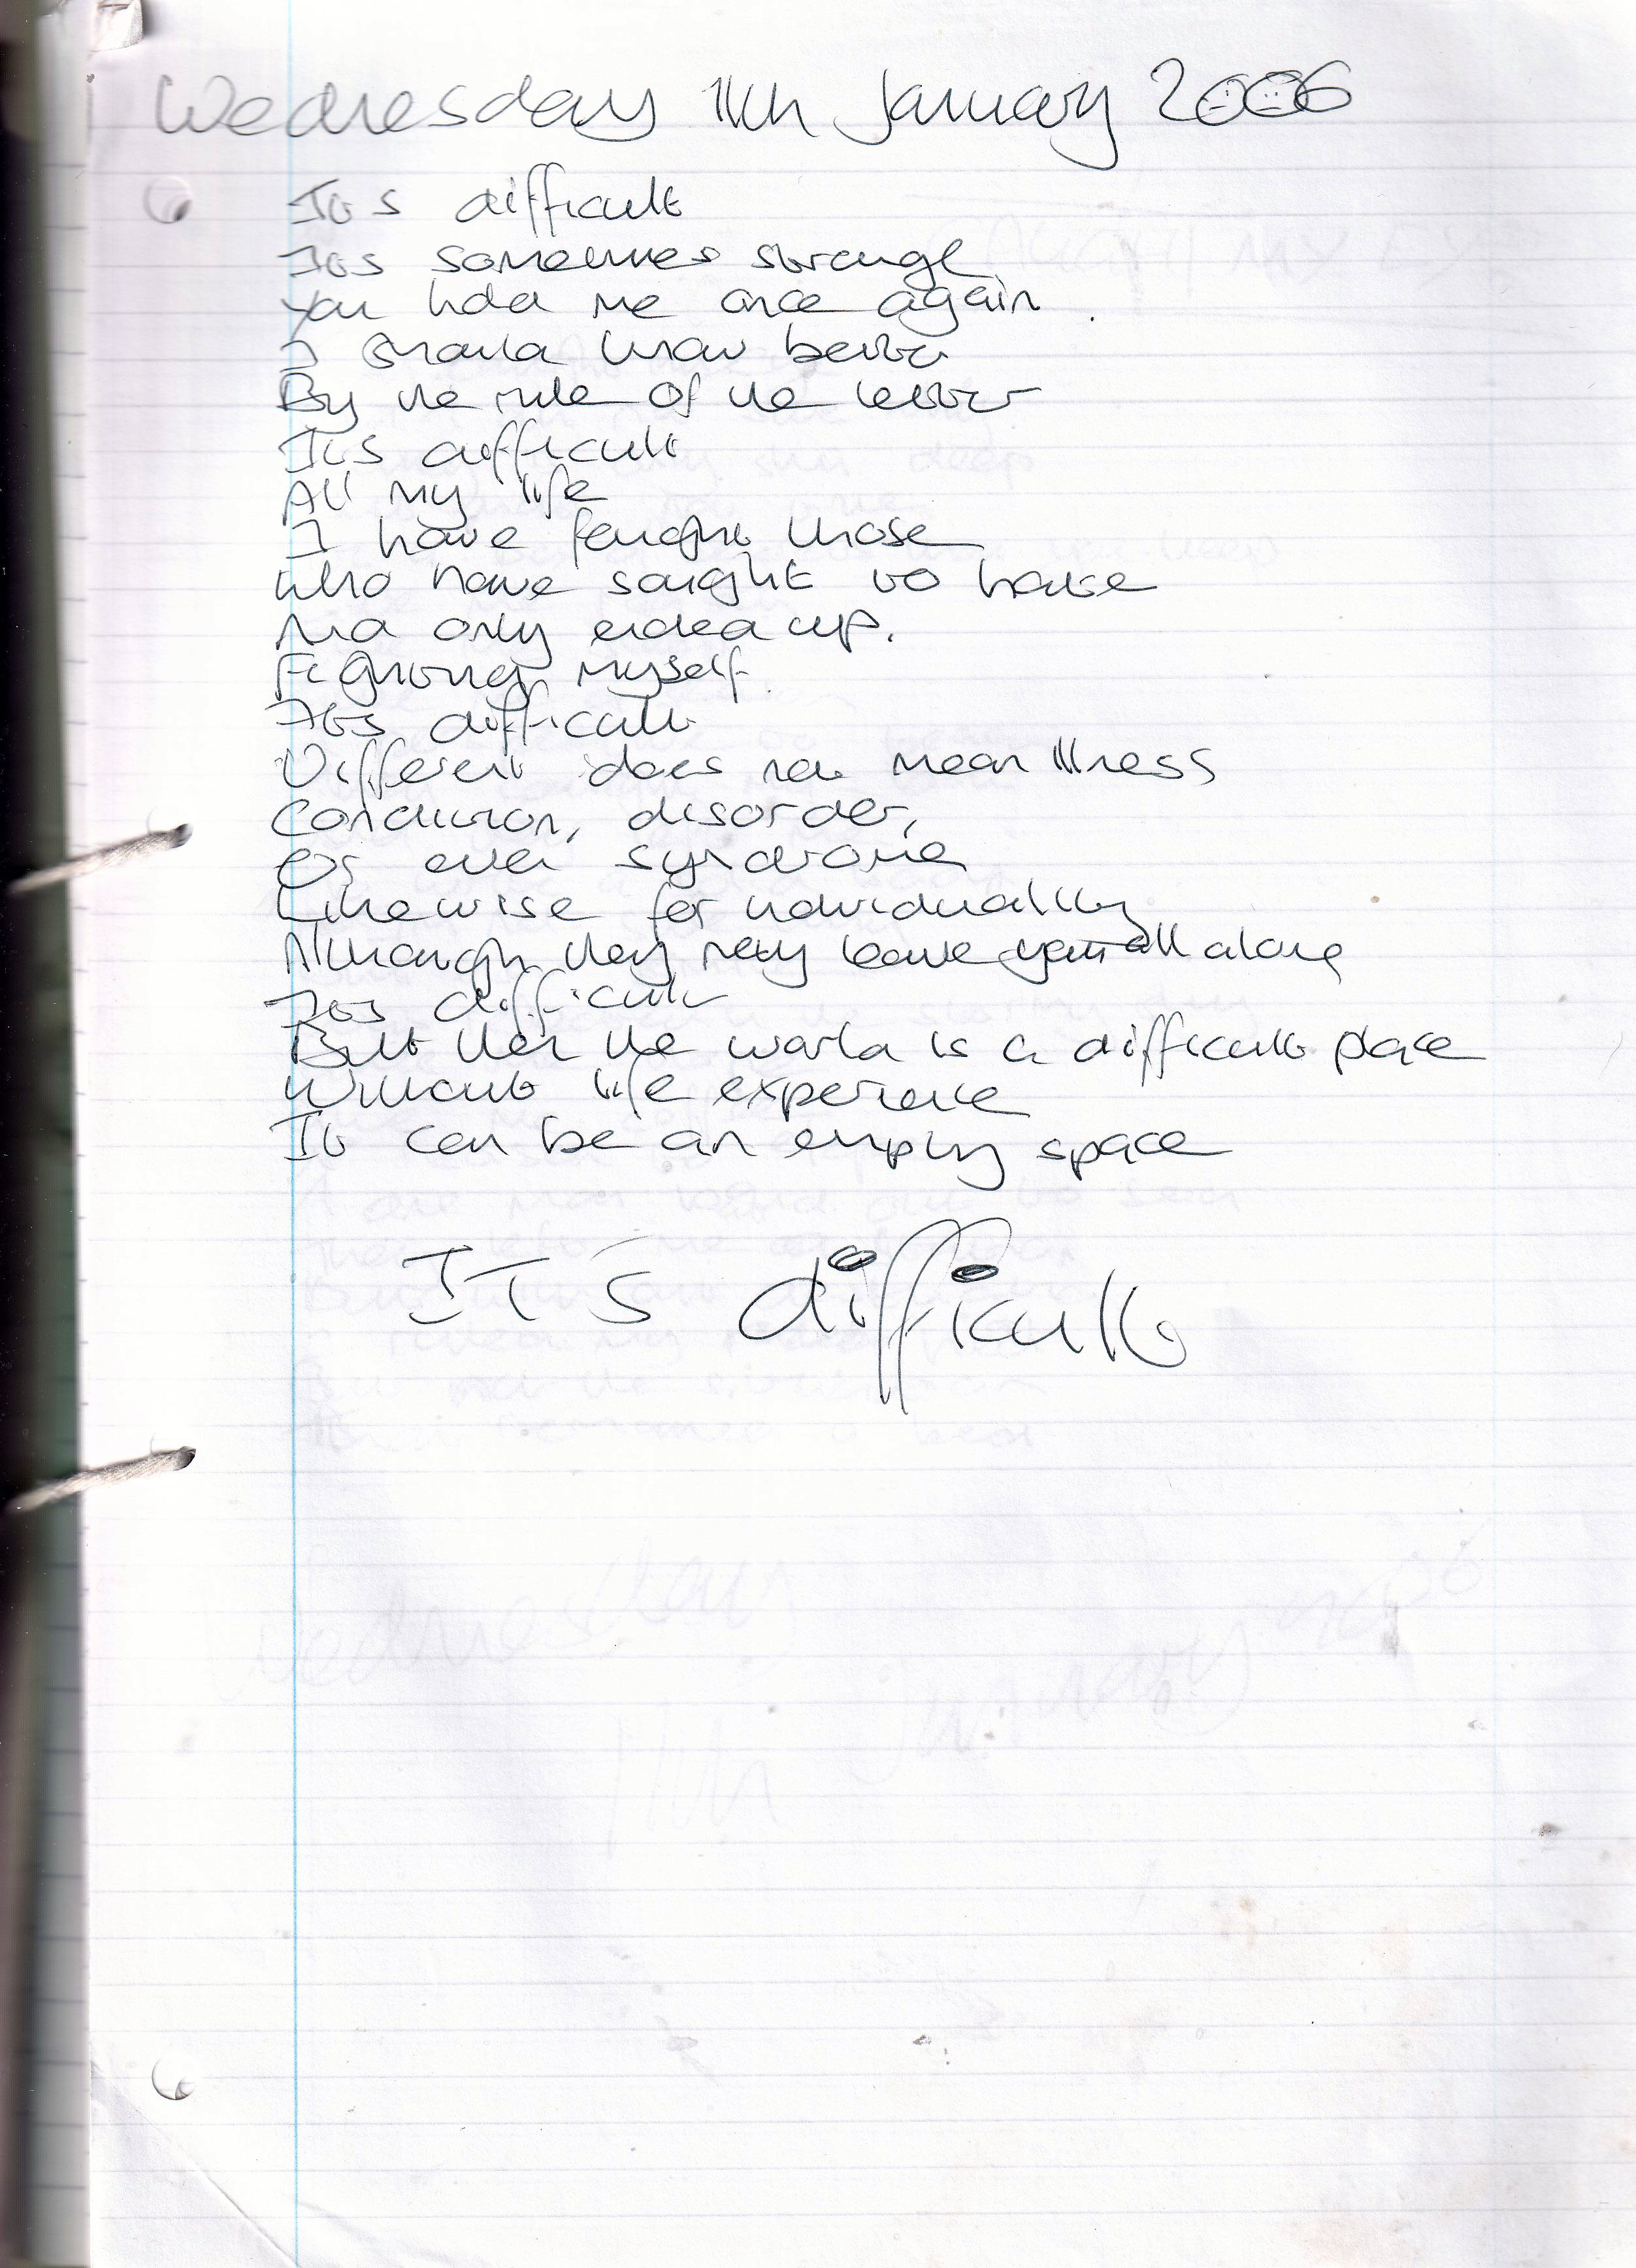 Wednesday 11th January 2006
It's difficult
It's sometimes strange
You hold me once again
I should know better
By the rule of the letter
It's difficult
All my life
I have fought those
Who have sought to
And only ended up.
Fighting myself
It's difficult
Different does not mean illness
Condition, disorder,
Or even syndrome
Likewise for individuality
Although they may leave you all alone
It's difficult
But then the world is a difficult place
Without life experience
It can be an empty space
IT'S difficult